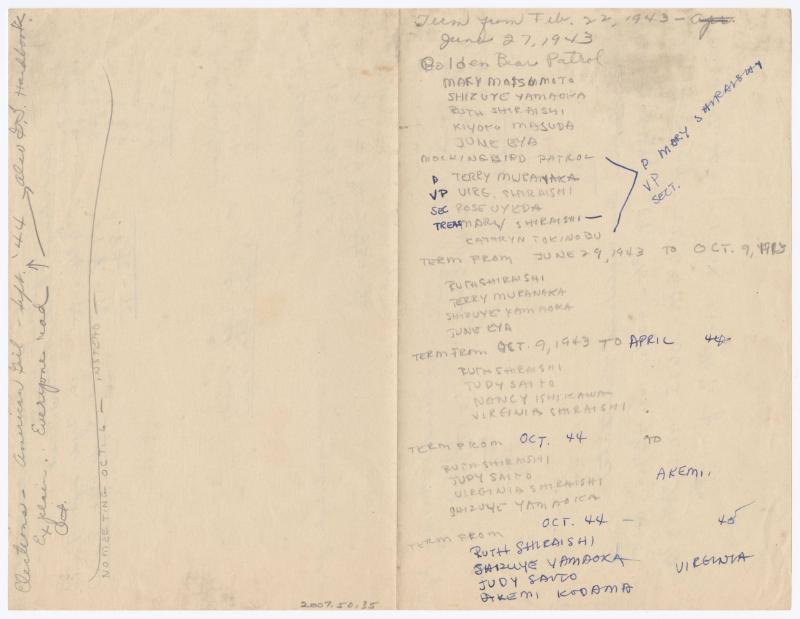 Elections - American Girl - Sept. '44 also G.S. Handbook
Explain. Everyone read
Oct.
NO MEETING OCT. 6 - INSTEAD -
2007.50.35
Term from Feb. 22, 1943 - Apr.
June 27, 1943
Golden Bear Patrol
MARY MATSUMOTO
SHIZUYE YAMAOKA
RUTH SHIRAISHI
KIYOKO MASUDA
JUNE EYA
MOCKINGBIRD PATROL
P TERRY MURANAKA
VP VIRG. SHIRAISHI
SEC ROSE UYEDA
TREAS MARY SHIRAISHI
KATHRYN TOKINOBU
P MARY SHIRAISHI
VP
SECT.
TERM FROM JUNE 29, 1943 TO OCT. 9, 1943
RUTH SHIRAISHI
TERRY MURANAKA
SHIZUYE YAMAOKA
JUNE EYA
TERM FROM OCT. 9, 1943 TO APRIL 44
RUTH SHIRAISHI
JUDY SAITO
NANCY ISHIKAWA
VIRGINIA SHIRAISHI
TERM FROM OCT. 44 TO
RUTH SHIRAISHI
JUDY SAITO
VIRGINIA SHIRAISHI
SHIZUYE YAMAOKA
AKEMI,
TERM FROM OCT. 44 - 45
RUTH SHIRAISHI
SHIZUYE YAMAOKA VIRGINIA
JUDY SAITO
AKEMI KODAMA